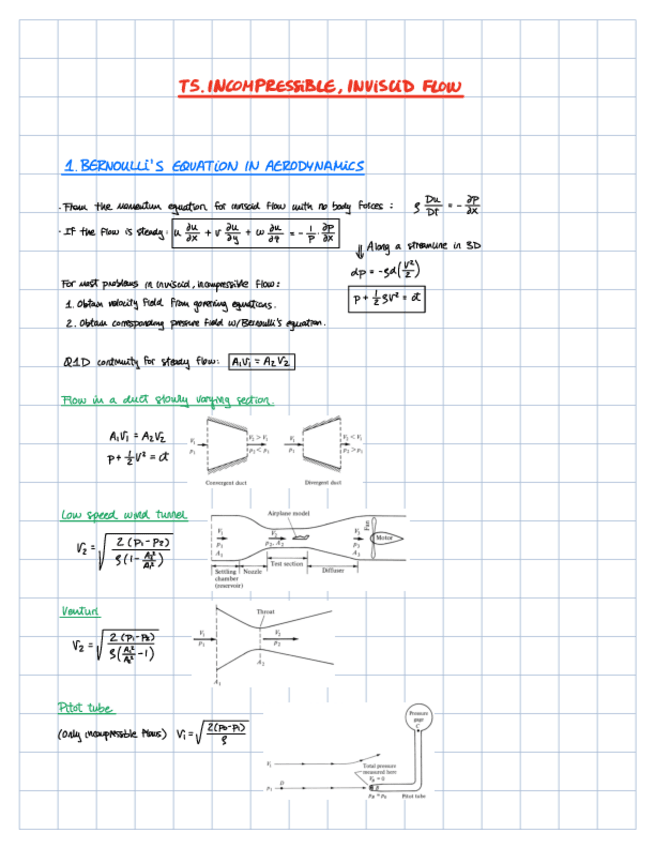 T5. INCOMPRESSIBLE, INVISCID FLOW
1. BERNOULLI'S EQUATION IN AERODYNAMICS
· From the momentum equation for inviscid flow with no body forces : ρ Du/Dt = - ∂P/∂x
· If the flow is steady: u ∂u/∂x + v ∂u/∂y + w ∂u/∂z = - 1/ρ · ∂P/∂x
⇓ Along a streamline in 3D
dp = -ρd(V²/2)
For most problems in inviscid, incompressible flow:
P + 1/2 ρV² = ct
1. Obtain velocity field from governing equations.
2. Obtain corresponding pressure field w/Bernoulli's equation.
Q1D continuity for steady flow: A₁V₁ = A₂V₂
Flow in a duct slowly varying section.
A₁V₁ = A₂V₂
P + 1/2 V² = ct
V₁ p₁ V₂ > V₁ p₂ < p₁
V₁ p₁ V₂ < V₁ p₂ > p₁
Convergent duct Divergent duct
Low speed wind tunnel
V₂ = √(2(P₁-P₂) / ρ(1-A₂²/A₁²))
Airplane model
V₁ p₁ A₁ V₂ p₂, A₂ V₃ p₃ A₃ Fan Motor
Settling chamber (reservoir) Nozzle Test section Diffuser
Venturi
V₂ = √(2(P₁-P₂) / ρ(A₁²/A₂²-1))
Throat
V₁ p₁ V₂ A₂
A₁
Pitot tube
(only incompressible flows) V₁ = √(2(P₀-P₁) / ρ)
Pressure gage C
V₁
Total pressure measured here
V_B = 0
p₁ D B
p_B = p₀ Pitot tube